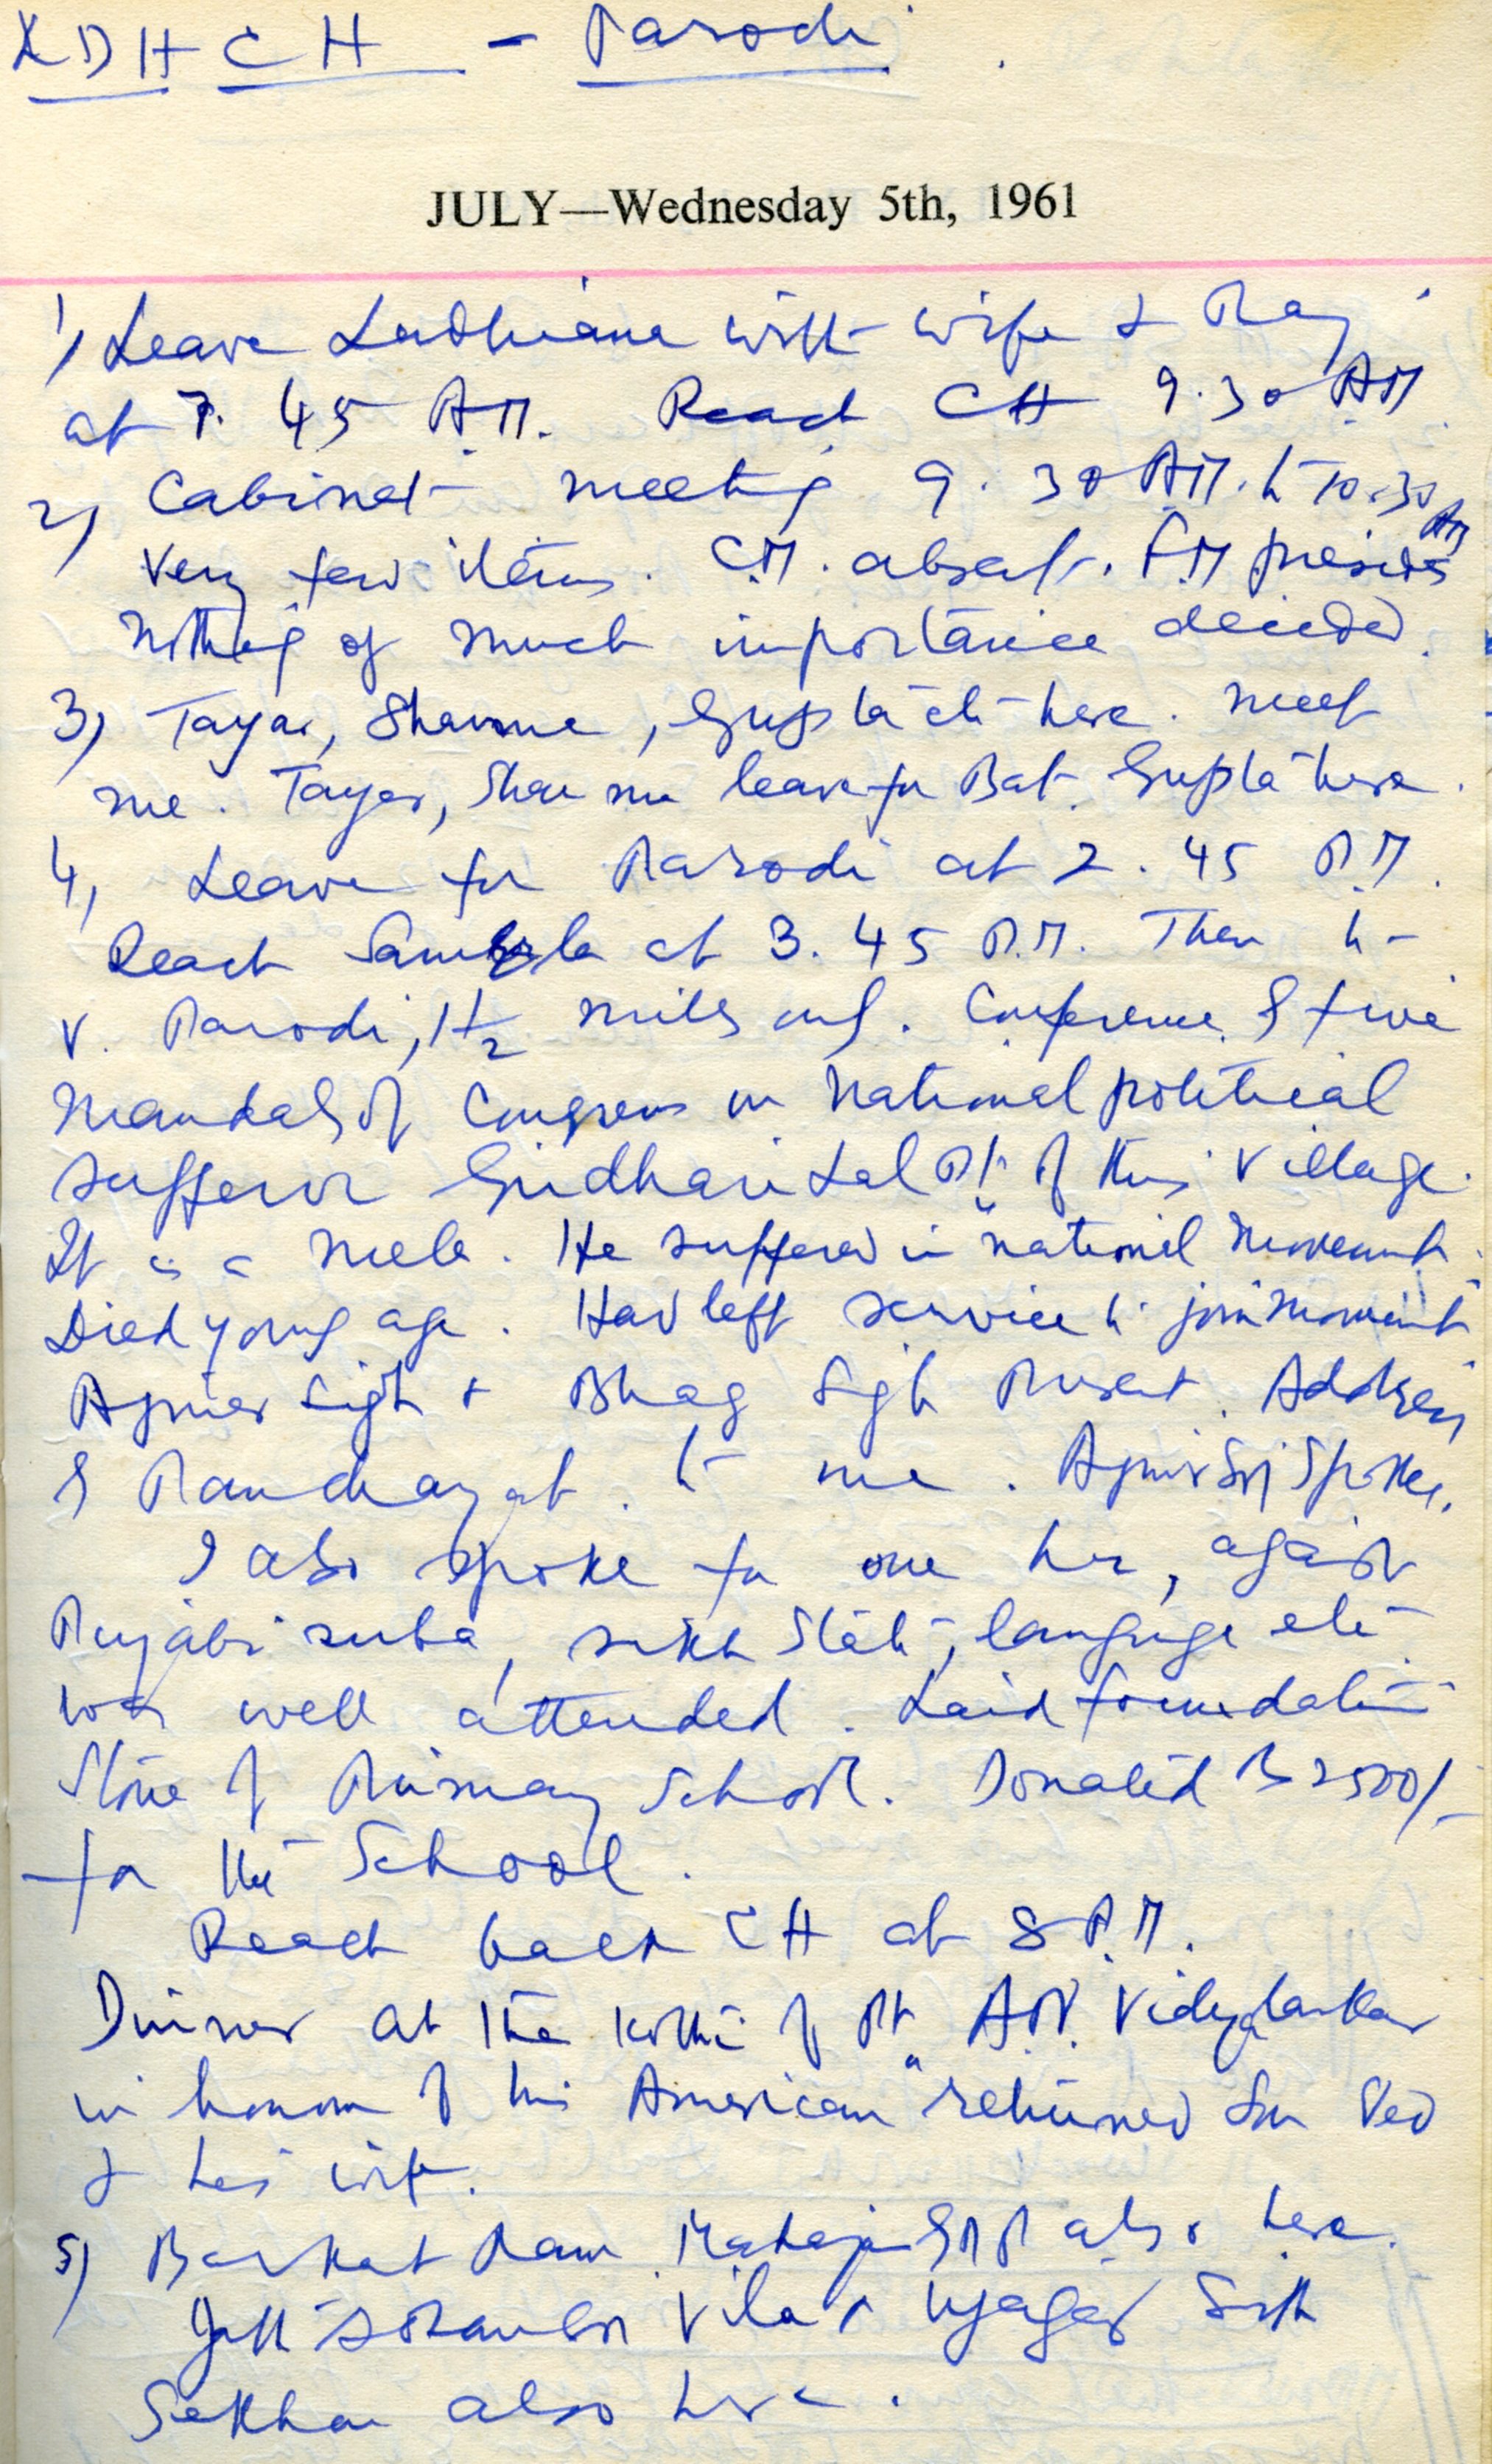 LDH CH - Parodi
JULY—Wednesday 5th, 1961
1) Leave Ludhiana with wife & Raj
at 7.45 A.M. Reach CH 9.30 AM
2) Cabinet meeting 9.30 AM. to 10.30 AM
Very few items. C.M. absent. F.M presides
Nothing of much importance decided.
3) Tayar, Sharma, Gupta etc here. meet
me. Tayar, Sharma leave for Bat. Gupta here.
4, Leave for Parodi at 2.45 P.M.
Reach at 3.45 P.M. Then to
V. Parodi, 1 1/2 miles out. Conference of five
Mandals of Congress on National political
sufferer Girdhari Lal Pt. of this village.
It is a mela. He suffered in national movement.
Died young age. Had left service to join movement
Ajmer Singh & Bhag Singh Present. Address
of Panchayat to me. Ajmer Singh spoke.
I also spoke for one hr, against
Punjabi suba, sikh state, language etc
was well attended. Laid foundation
Stone of Primary School. Donated Rs 2500/-
for the School.
Reach back CH at 8 P.M.
Dinner at the kothi of Pt. A.N. Vidyalankar
in honour of his American returned son Ved
& his wife.
5) Barkat Ram Mahajan also here.
Vila & Ujagar Singh
Sekhon also here.